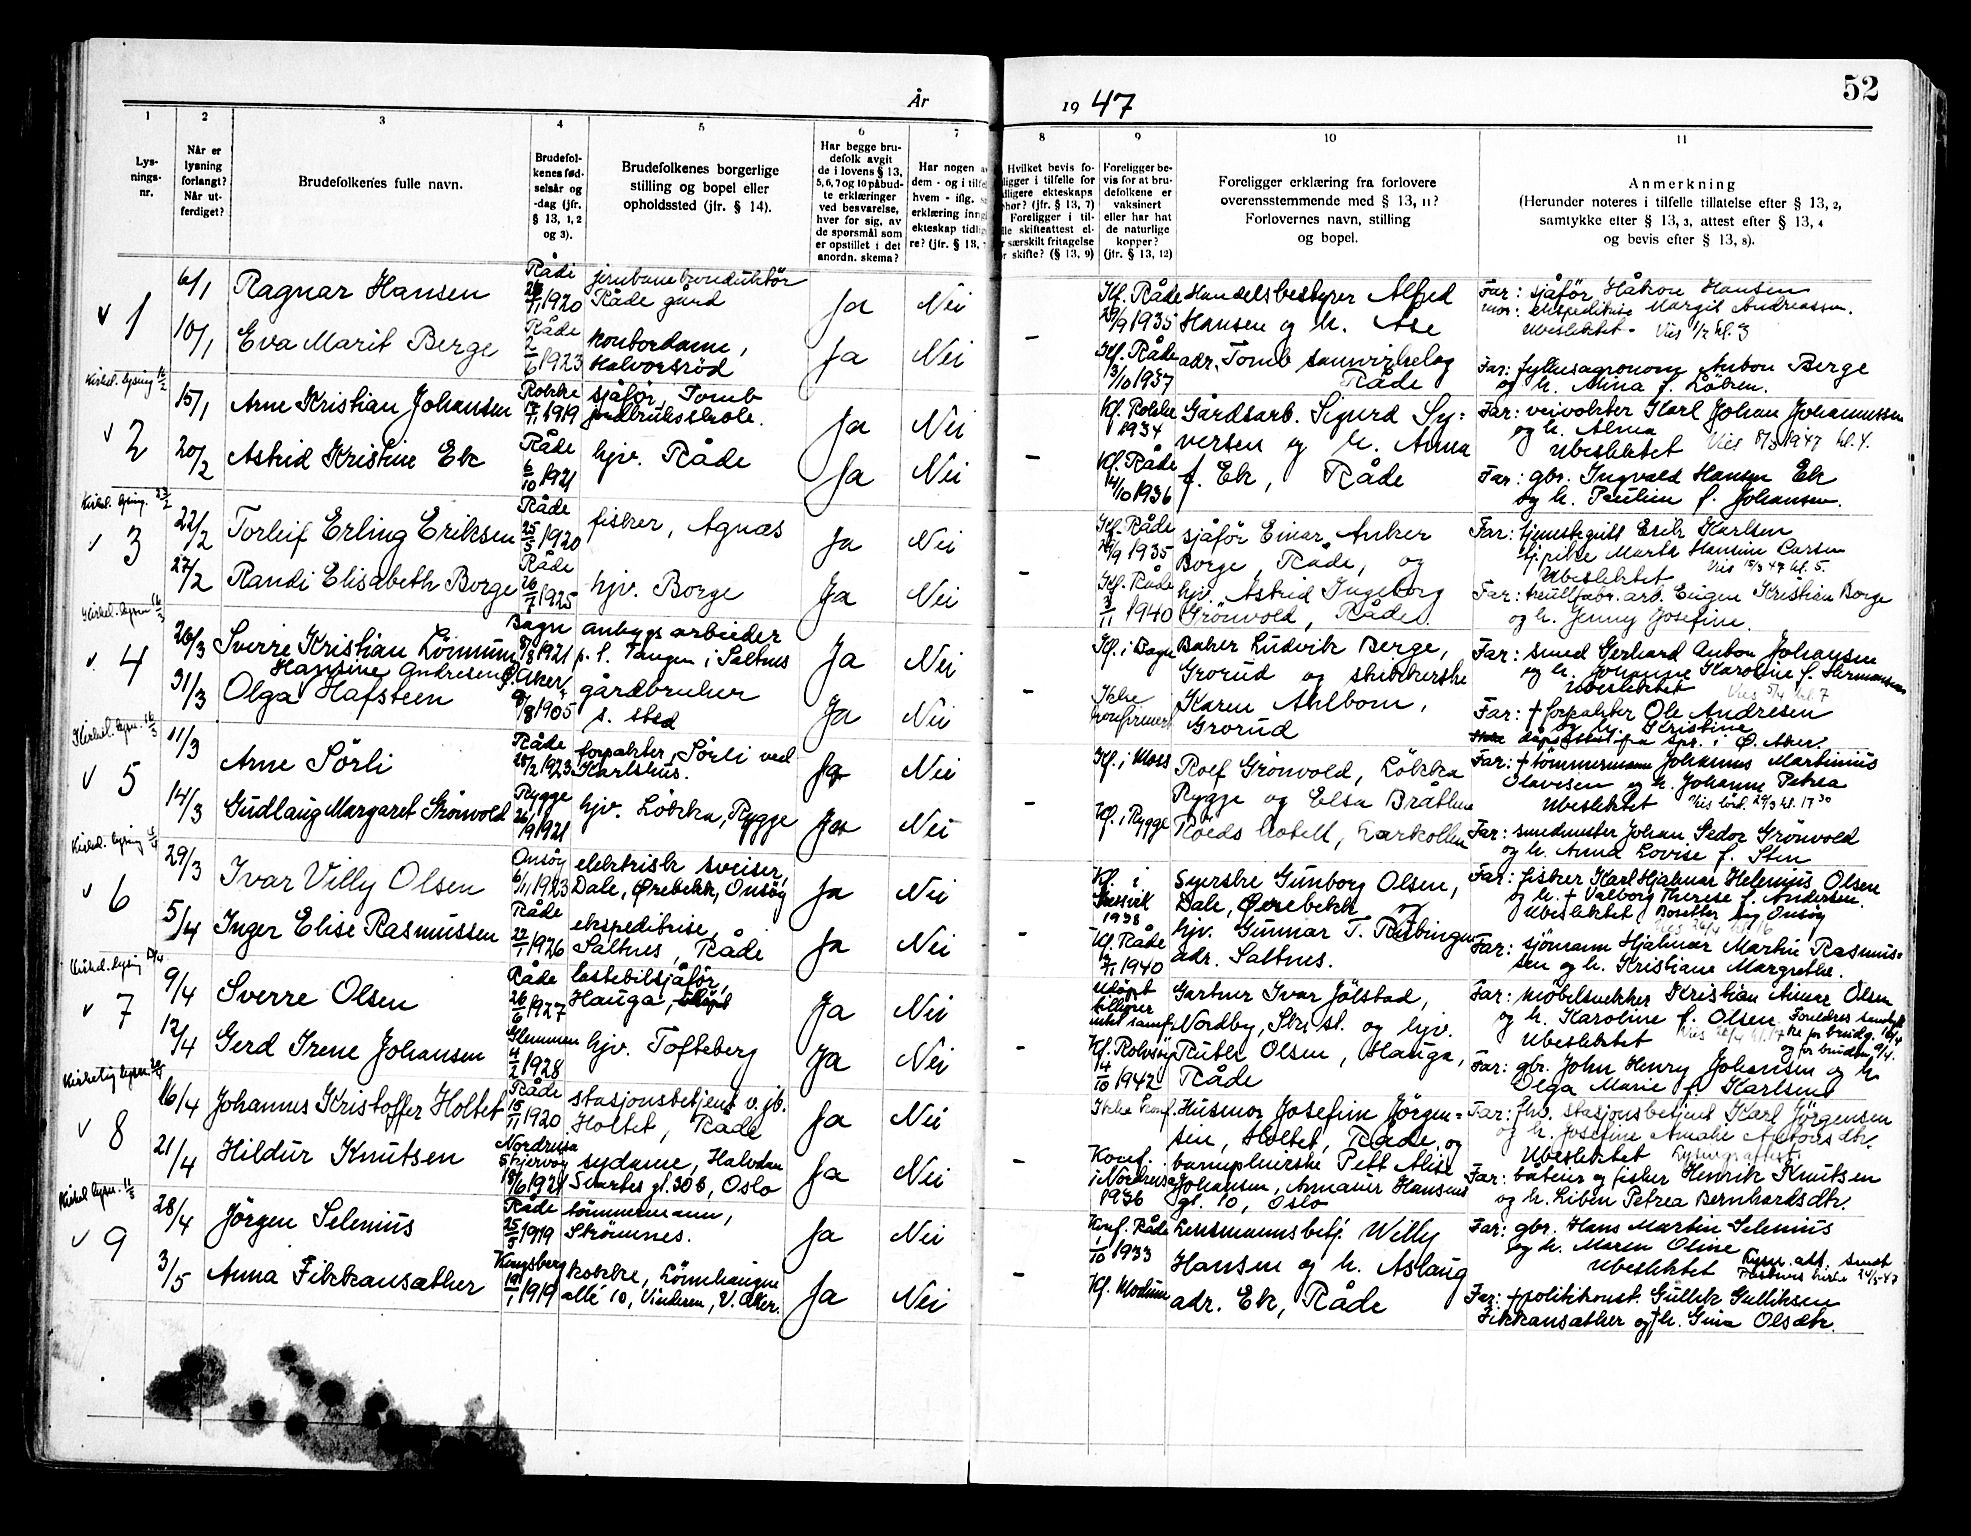 52
År 19 47
1 2 3 4 5 6 7 8 9 10 11
Lys-
nings-
nr.
Når er
lysning
forlangt?
Når ut-
ferdiget?
Brudefolkenes fulle navn.
Brudefol-
kenes fød-
selsår og
-dag (jfr.
§ 13, 1, 2
og 3).
Brudefolkenes borgerlige
stilling og bopel eller
opholdssted (jfr. § 14).
Har begge bru-
defolk avgit
de i lovens § 13,
5, 6, 7 og 10 påbud-
te erklæringer
ved besvarelse,
hver for sig, av
de spørsmål som
er opstillet i det
anordn. skema?
Har nogen a
dem - og i tilfe
hvem - iflg. s
erklæring inng
ekteskap tidlig
re? (jfr. § 13,
Hvilket bevis fo-
ligger i tilfelle for
dligere ekteskaps
phør? (jfr. § 13, 7)
Foreligger i til-
lle skifteattest el-
r særskilt fritagelse
r skifte? (§ 13, 9)
Foreligger be-
vis for at bru-
defolkene er
vaksinert
eller har hat
de naturlige
kopper?
(jfr. § 13, 12)
Foreligger erklæring fra forlovere
overensstemmende med § 13, 11?
Forlovernes navn, stilling
og bopel.
Anmerkning
(Herunder noteres i tilfelle tillatelse efter § 13, 2,
samtykke efter § 13, 3, attest efter § 13, 4
og bevis efter § 13, 8).
v 1
6/1
Ragnar Hansen
Råde
1920
jernbanekonduktør
Råde gard
Ja
Nei
Kf. Råde
29/9 1935
Handelsbestyrer Alfred
Hansen og h. Åse
Far: sjåför Håkon Hansen
mor: ekspeditrise Margit Andreassen.
Ubeslektet. Vies 1/2 kl. 3
10/1
Eva Marit Berge
Råde
2/6 1923
kontordame,
Halvorsröd
Ja
Nei
–
Kf. Råde
3/10 1937
adr. Tomb samvirkelag
Råde
Far: fylkesagronom Anton Berge
og h. Mina f. Löken.
Kirkel. lysing 16/2
v 2
15/1
Arne Kristian Johansen
Rokke
1919
sjåför, Tomb
jordbruksskole.
Ja
Nei
Kf. Rokke
1934
Gårdsarb. Sigurd Sy-
versen og h. Anna
Far: veivokter Karl Johan Johannessen
og h. Alma
Ubeslektet Vies 8/3 1947 kl. 4.
20/2
Astrid Kristine Ek
Råde
6/10 1921
hjv. Råde
Ja
Nei
–
Kf. Råde
14/10 1936
f. Ek, Råde
Far: gbr. Ingvald Hansen Ek
og h. Pauline f. Johansen.
Kirkel. lysing. 23/2
v 3
22/2
Torleif Erling Eriksen
Råde
25/5 1920
fisker, Agnæs
Ja
Nei
Kf. Råde
/9 1935
sjåför Einar Anker
Borge, Råde, og
Far: tjenestegutt Erik Karlsen
tjpike Marta Hansine Larsen
Ubeslektet Vies 15/3 47 kl. 5.
27/2
Randi Elisabeth Borge
Råde
26/7 1925
hjv. Borge
Ja
Nei
–
Kf. Råde
3/11 1940
hjv. Astrid Ingeborg
Grönvold, Råde.
Far: treullfabr. arb. Eugen Kristian Borge
og h. Jenny Josefine.
Kirkel. lysn 16/3
v 4
26/3
Sverre Kristian
Bagn
/8 1921
anlegsarbeider
p. t. Tangen i Saltnes
Ja
Nei
Kf. i Bagn
Baker Ludvik Berge,
Grorud og strikkerske
Far: smed Gerhard Anton Johansen
og h. Johanne Karoline f. Hermansen
Ubeslektet Vies 5/4 kl. 7
31/3
Hansine Andresen
Olga Hafsteen
Ö. Aker,
/8 1905
gårdbruker
s. sted
Ja
Nei
–
Ikke
konfirmert
Karen Ahlbom,
Grorud
Far: + forpakter Ole Andresen
og h. Kristine
dåpsattest fra spr. i Ö. Aker.
Kirkel. lysn. 16/3
v 5
11/3
Arne Sörli
Råde
20/2 1923
forpakter, Sörli ved
Karlshus.
Ja
Nei
Kf. i Moss
Rolf Grönvold, Lökka
Rygge og Elsa Bråthen
Far: + tömmermann Johannes Martinius
Olavesen og h. Johanne Petrea
Ubeslektet Vies lörd. 29/3 kl. 17 30
14/3
Gudlaug Margaret Grönvold
Rygge
26/9 1921
hjv. Lökka, Rygge
Ja
Nei
–
Kf. i Rygge
Röeds hotell, Larkollen
Far: smedmester Johan Pedor Grönvold
og h. Anna Lovise f. Sten
Kirkel. lysing
v 6
29/3
Ivar Villy Olsen
Onsöy
6/1 1923
elektrisk sveiser,
Dale, Ørebekk, Onsöy
Ja
Nei
Kf. i
1938
Syerske Gunborg Olsen,
Dale, Ørebekk og
Far: fisker Karl Hjalmar Helenius Olsen
og h. + Valborg Therese f. Andersen.
Ubeslektet Bosetter seg Onsöy
Vies 26/4 kl 16
5/4
Inger Elise Rasmussen
Råde
22/1 1926
ekspeditrise,
Saltnes, Råde
Ja
Nei
–
Kf. Råde
1940
hjv. Gunnar T.
adr. Saltnes.
Far: sjömann Hjalmar Martin Rasmus-
sen og h. Kristiane Margrethe.
Kirkel. lysing
v 7
9/4
Sverre Olsen
Råde
26/6 1927
lastebilsjåför,
Hauga,
Ja
Nei
Udöpt
tilhörer
intet samf.
Gartner Ivar Jölstad,
Nordby, Ski st. og hjv.
Far: möbelsnekker Kristian Einar Olsen
og h. Karoline f. Olsen. Foreldres samtyk-
ke for brudg. 10/4
og for bruden 9/4.
Ubeslektet
12/4
Gerd Irene Johansen
Glemmen
4/2 1928
hjv. Tofteberg
Ja
Nei
–
Kf. Rolvsöy
4/10 1942
Ruth Olsen, Hauga,
Råde
Far: gbr. John Henry Johansen og h
Olga Marie f. Karlsen
Kirkelig lysn.
v 8
16/4
Johannes Kristoffer Holtet
Råde
15/11 1920
stasjonsbetjent v. jb.
Holtet, Råde
Ja
Nei
Ikke konf.
Husmor Josefine Jörgen-
sen, Holtet, Råde, og
Far: fhv. stasjonsbetjent Karl Jörgensen
og h. Josefine Amalie Antonsdtr.
Ubeslektet Lysningsattest
21/4
Hildur Knutsen
Nordreisa
Skjervöy
/6 1921
sydame, Halvdan
Svartes gt. 30 B, Oslo
Ja
Nei
Konf.
i Nordreisa
1936
barnepleierske Pett Alise
Johansen, Armauer Hansens
gt. 10, Oslo
Far: båteier og fisker Henrik Knutsen
og h. Liben Petrea Bernhardsdtr.
Kirkel. lysn. 11/5
v 9
28/4
Jörgen Selenius
Råde
25/5 1919
tömmermann,
Strömnes.
Ja
Nei
Konf. Råde
1/10 1933
Lensmannsbetj. Willy
Hansen og h. Aslaug
Far: gbr. Hans Martin Selenius
og h. Maren Oline
Ubeslektet Lysn. att. sendt
3/5
Anna Fikkansæther
Kongsberg
1919
kokke, Lönnhaugne
allé 10, Vinderen, V. Aker.
Ja
Nei
–
Kf. Modum
adr. Ek, Råde
Far: + politikonst. Gullik Gulliksen
Fikkansæther og + h. Gina Olsdtr.